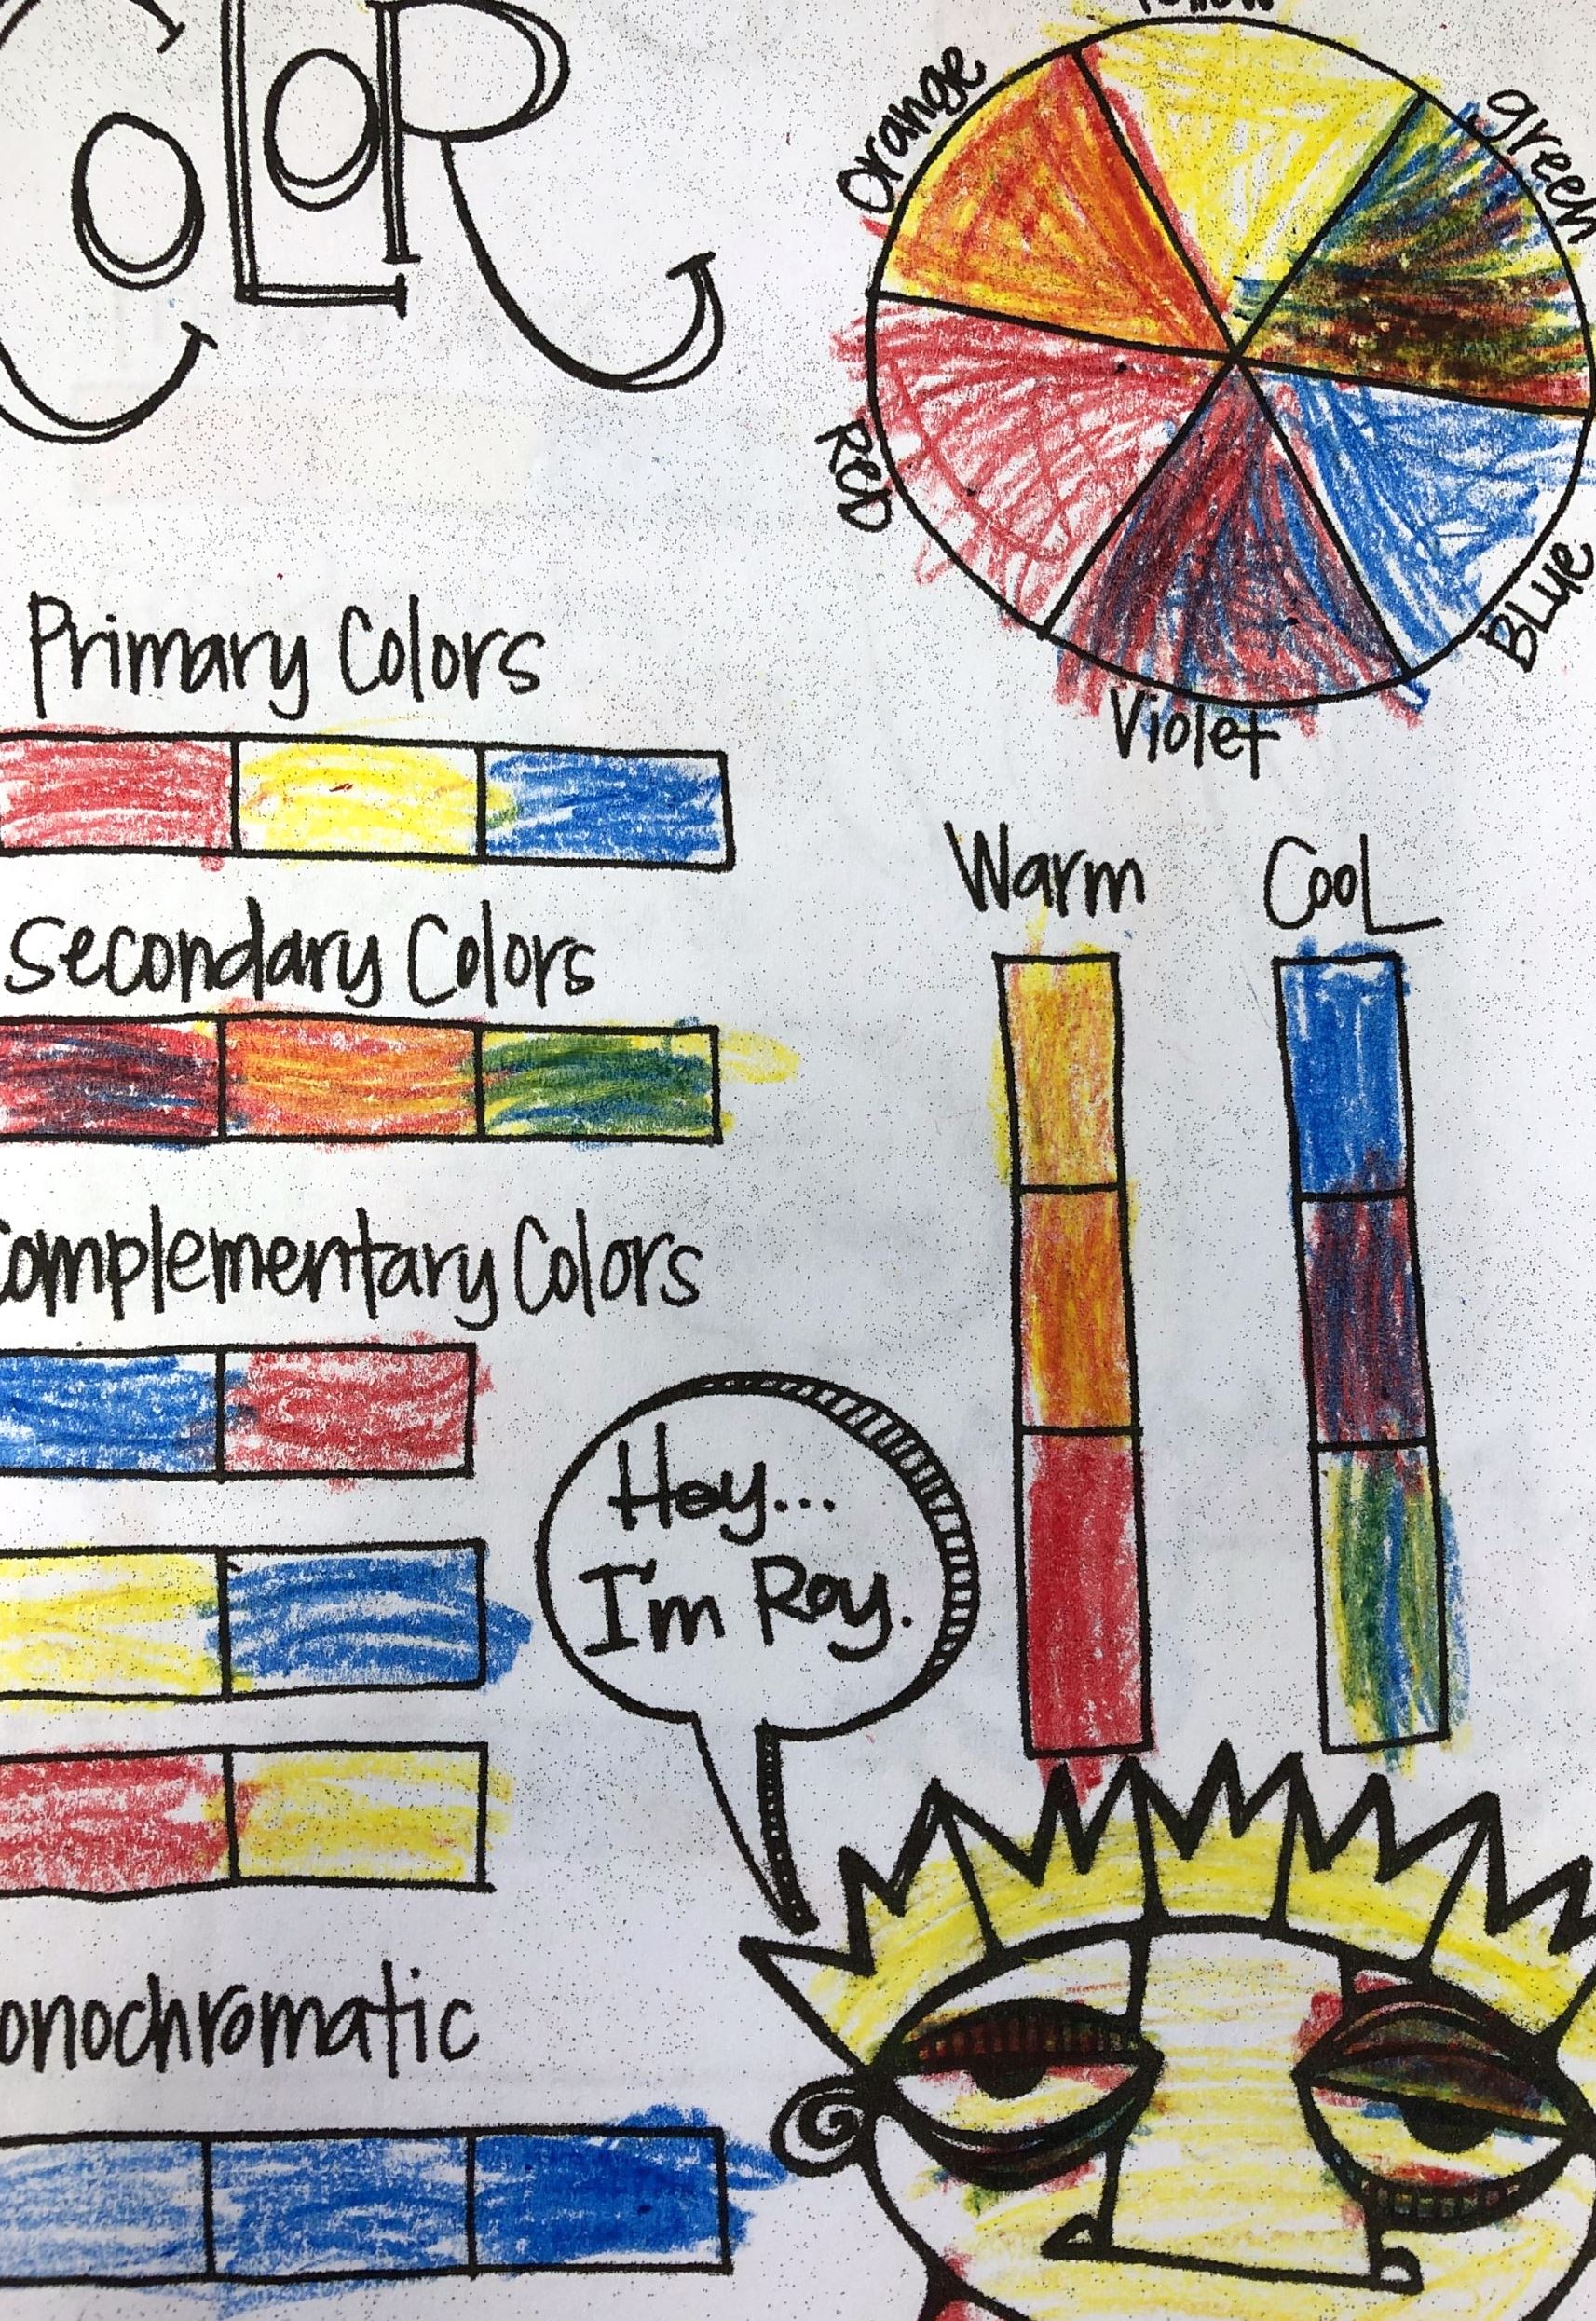 COLOR
Yellow
Orange
green
RED
BLUe
Violet
Primary Colors
Secondary Colors
Complementary Colors
Warm
CooL
Hey...
I'm Roy.
onochromatic